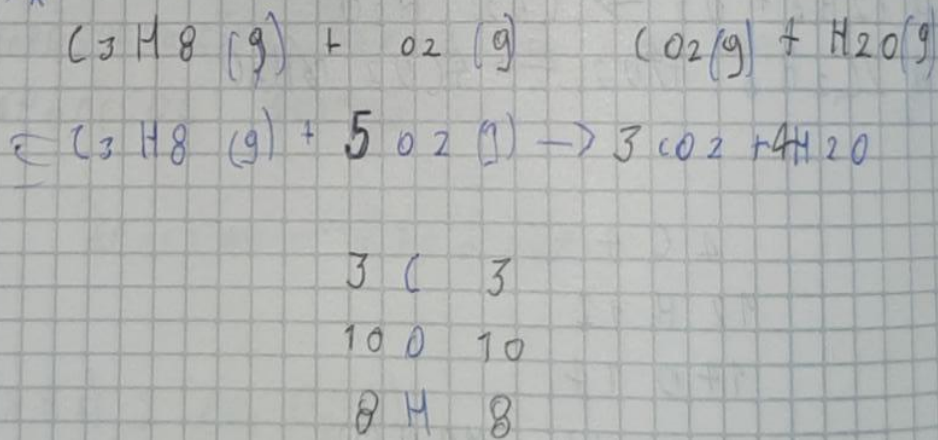 C3H8 (g) + O2 (g) CO2(g) + H2O(g)
C3H8 (g) + 5O2 (g) -> 3CO2 + 4H2O
3 C 3
10 O 10
8 H 8